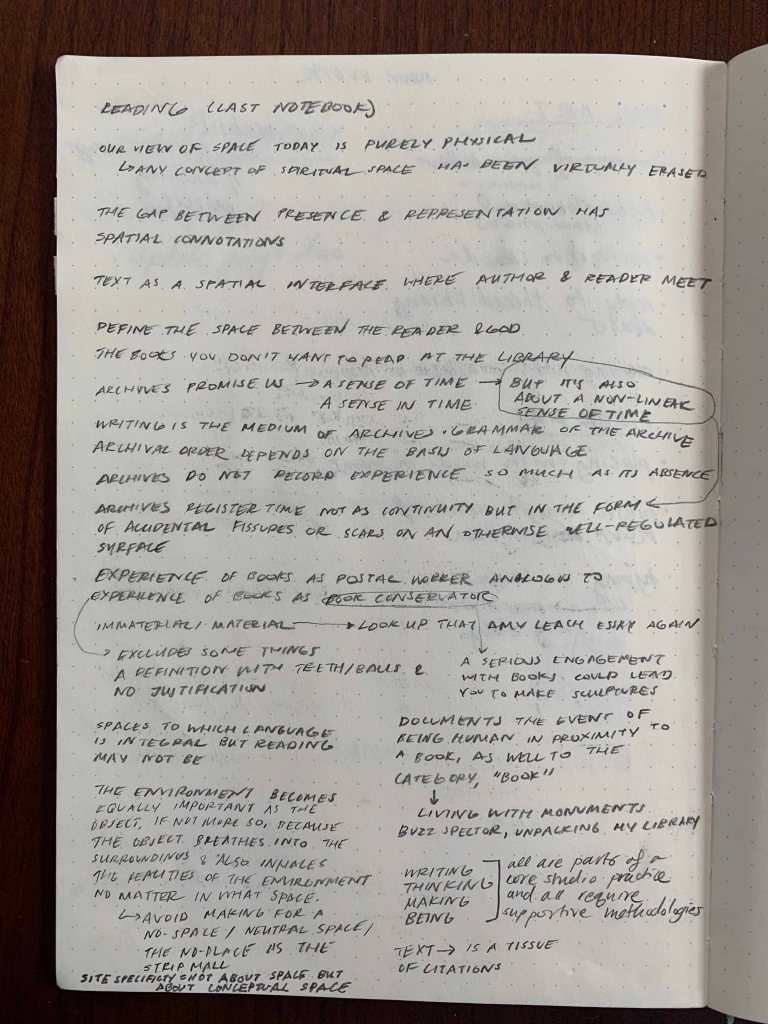 READING (LAST NOTEBOOK)
OUR VIEW OF SPACE TODAY IS PURELY PHYSICAL
↳ANY CONCEPT OF SPIRITUAL SPACE HAS BEEN VIRTUALLY ERASED
THE GAP BETWEEN PRESENCE & REPRESENTATION HAS
SPATIAL CONNOTATIONS
TEXT AS A SPATIAL INTERFACE WHERE AUTHOR & READER MEET
DEFINE THE SPACE BETWEEN THE READER & GOD
THE BOOKS YOU DON'T WANT TO READ AT THE LIBRARY
ARCHIVES PROMISE US → A SENSE OF TIME → BUT IT'S ALSO
A SENSE IN TIME ABOUT A NON-LINEAR
SENSE OF TIME
WRITING IS THE MEDIUM OF ARCHIVES · GRAMMAR OF THE ARCHIVE
ARCHIVAL ORDER DEPENDS ON THE BASIS OF LANGUAGE
ARCHIVES DO NOT RECORD EXPERIENCE SO MUCH AS ITS ABSENCE
ARCHIVES REGISTER TIME NOT AS CONTINUITY BUT IN THE FORM ←
OF ACCIDENTAL FISSURES OR SCARS ON AN OTHERWISE WELL-REGULATED
SURFACE
EXPERIENCE OF BOOKS AS POSTAL WORKER ANALOGIS TO
EXPERIENCE OF BOOKS AS BOOK CONSERVATOR
IMMATERIAL/MATERIAL → LOOK UP THAT AMY LEACH ESSAY AGAIN
EXCLUDES SOME THINGS
A DEFINITION WITH TEETH/BALLS &
NO JUSTIFICATION
A SERIOUS ENGAGEMENT
WITH BOOKS COULD LEAD
YOU TO MAKE SCULPTURES
SPACES TO WHICH LANGUAGE
IS INTEGRAL BUT READING
MAY NOT BE
THE ENVIRONMENT BECOMES
EQUALLY IMPORTANT AS THE
OBJECT, IF NOT MORE SO, BECAUSE
THE OBJECT BREATHES INTO THE
SURROUNDINGS & ALSO INHALES
THE REALITIES OF THE ENVIRONMENT
NO MATTER IN WHAT SPACE.
↳AVOID MAKING FOR A
NO-SPACE/NEUTRAL SPACE/
THE NO-PLACE AS THE
STRIP MALL
SITE SPECIFICTY = NOT ABOUT SPACE BUT
ABOUT CONCEPTUAL SPACE
DOCUMENTS THE EVENT OF
BEING HUMAN IN PROXIMITY TO
A BOOK, AS WELL TO THE
CATEGORY, "BOOK"
↓
LIVING WITH MONUMENTS
BUZZ SPECTOR, UNPACKING MY LIBRARY
WRITING
THINKING
MAKING
BEING
all are parts of a
core studio practice
and all require
supportive methodologies
TEXT → IS A TISSUE
OF CITATIONS